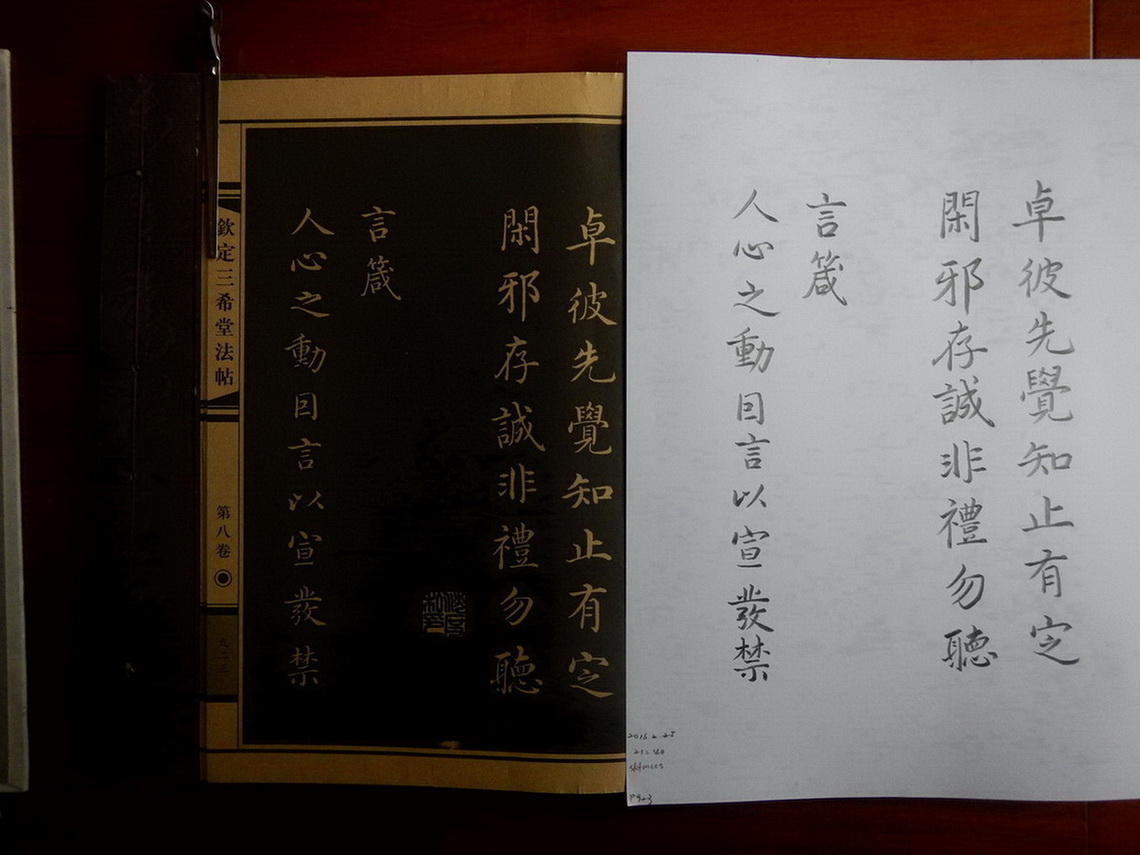 卓彼先覺知止有定
閑邪存誠非禮勿聽
言箴
人心之動因言以宣發禁
欽定三希堂法帖
第八卷
九二三
卓彼先覺知止有定
閑邪存誠非禮勿聽
言箴
人心之動因言以宣發禁
P923